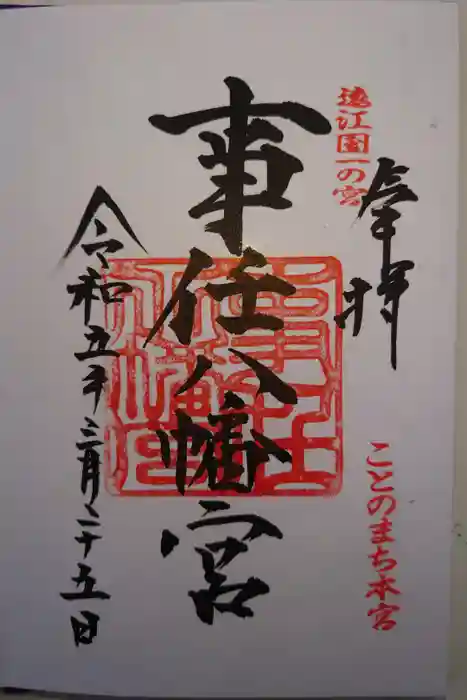 遠江国一の宮
奉拝
ことのまち本宮
事任八幡宮
事任八幡宮
令和五年三月二十五日